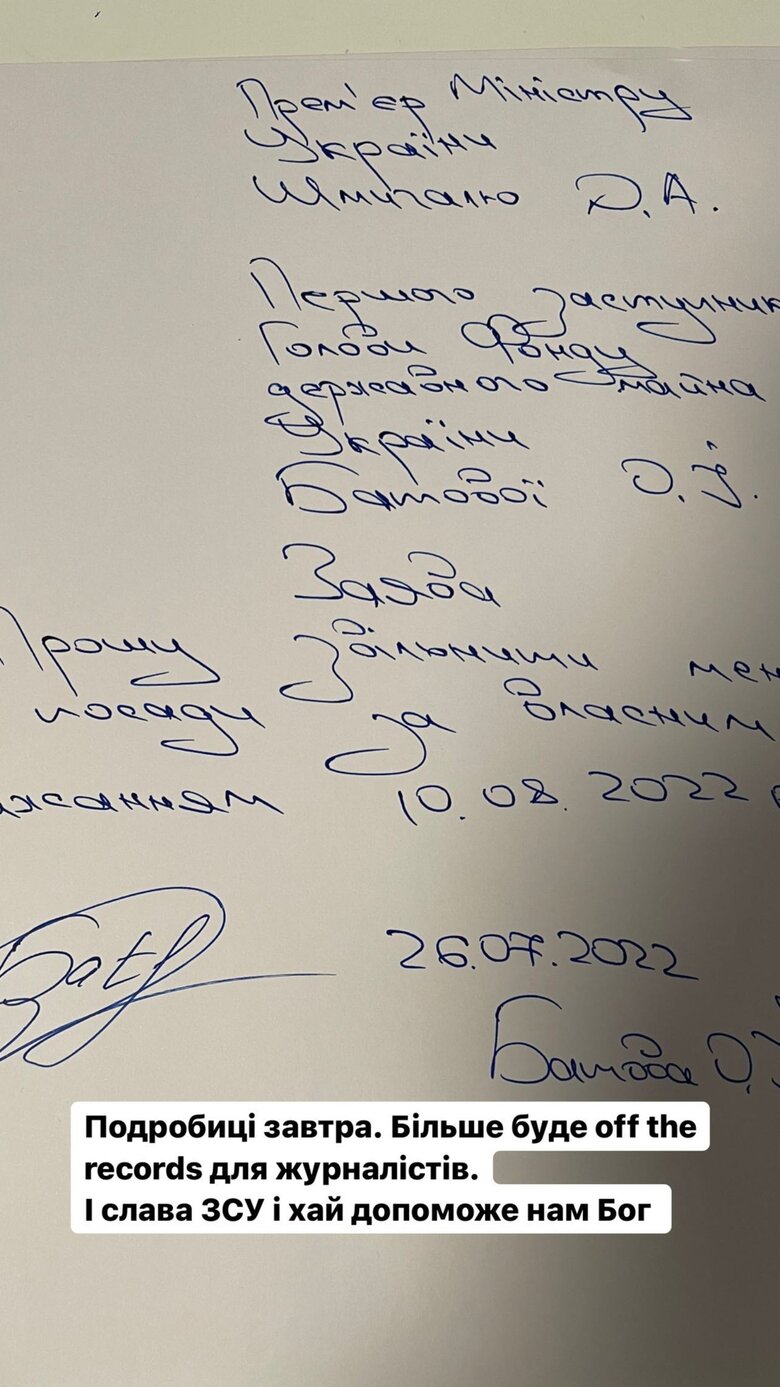 Прем'єр Міністру
України
Шмигалю Д.А.
Першого Заступник
Голови Фонду
державного майна
України
Батової О.Ї.
Заява
Прошу Звільнити мен
посади за власним
ажанням 10.08.2022 р
Бату
26.07.2022
Батова О.Ї
Подробиці завтра. Більше буде off the
records для журналістів.
І слава ЗСУ і хай допоможе нам Бог